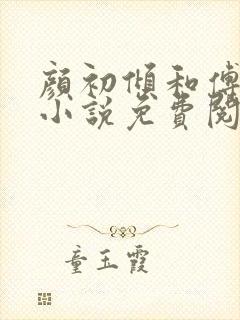 顏初傾和傅
小說免費閱
童玉霞